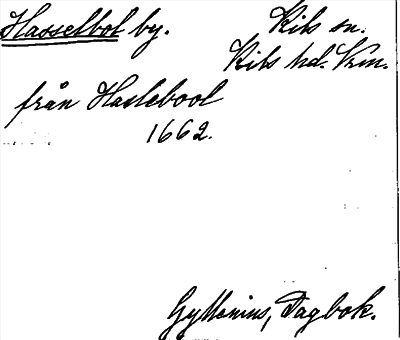 Hasselbol by. Kils sn.
Kils hd. Vrm.
från Haslebool
1662.
Gyllenius, Dagbok.